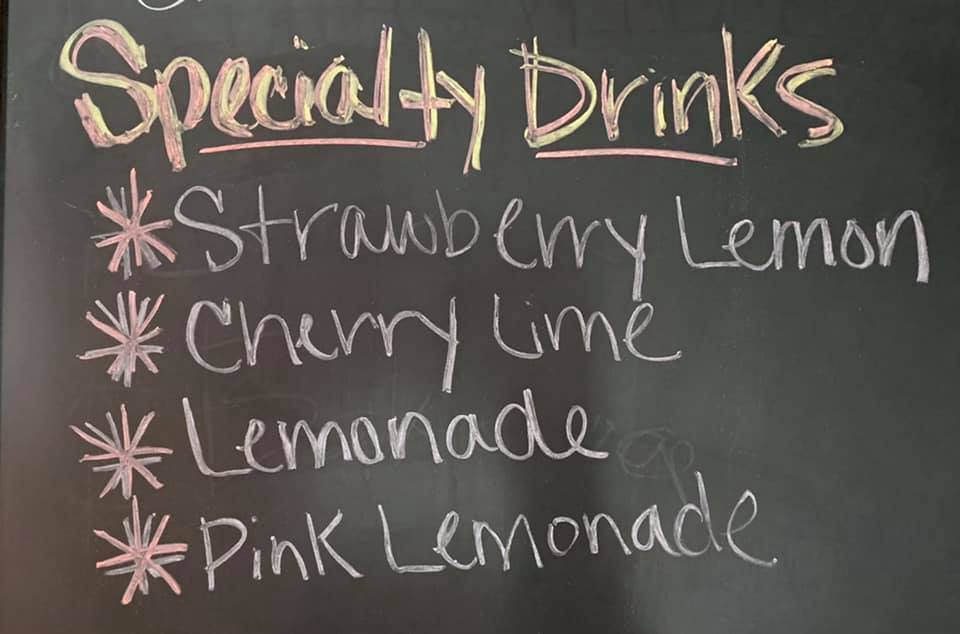 Specialty Drinks
* Strawberry Lemon
* Cherry Lime
* Lemonade
* Pink Lemonade